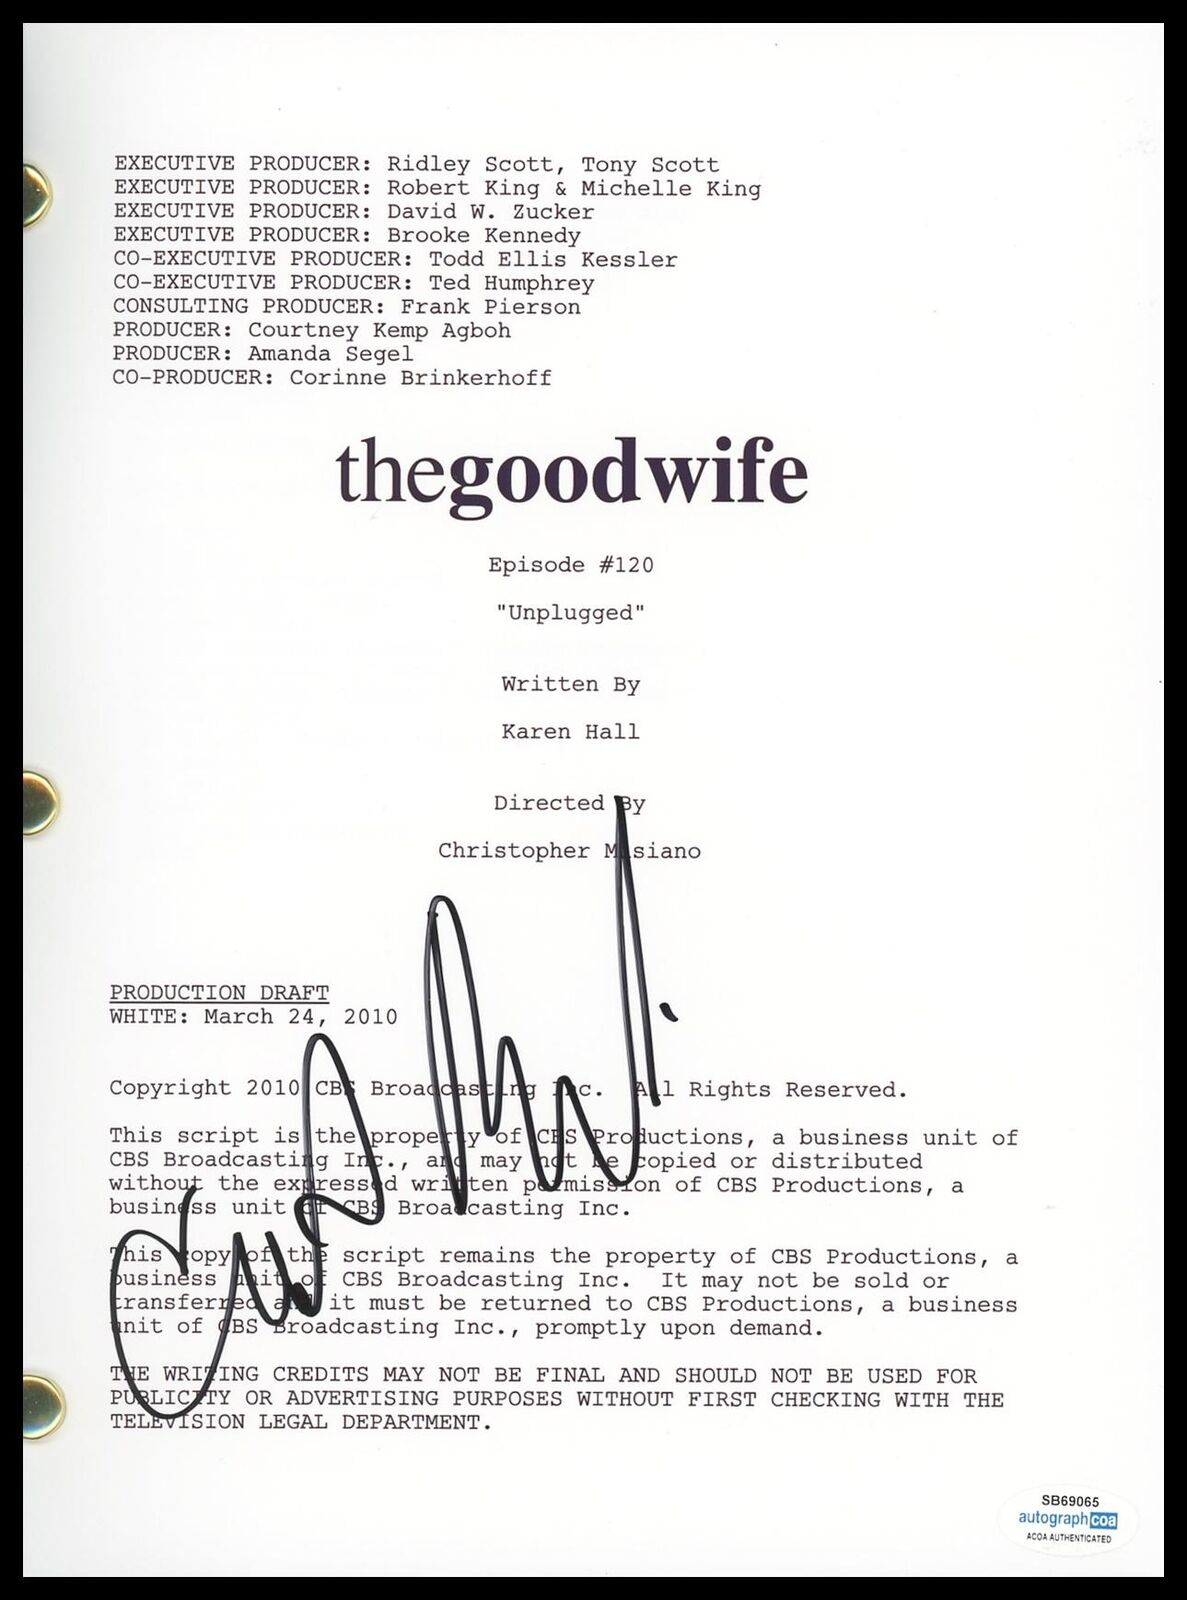 EXECUTIVE PRODUCER: Ridley Scott, Tony Scott
EXECUTIVE PRODUCER: Robert King & Michelle King
EXECUTIVE PRODUCER: David W. Zucker
EXECUTIVE PRODUCER: Brooke Kennedy
CO-EXECUTIVE PRODUCER: Todd Ellis Kessler
CO-EXECUTIVE PRODUCER: Ted Humphrey
CONSULTING PRODUCER: Frank Pierson
PRODUCER: Courtney Kemp Agboh
PRODUCER: Amanda Segel
CO-PRODUCER: Corinne Brinkerhoff
thegoodwife
Episode #120
"Unplugged"
Written By
Karen Hall
Directed By
Christopher Misiano
PRODUCTION DRAFT
WHITE: March 24, 2010
Copyright 2010 CBS Broadcasting Inc. All Rights Reserved.
This script is the property of CBS Productions, a business unit of
CBS Broadcasting Inc., and may not be copied or distributed
without the expressed written permission of CBS Productions, a
business unit of CBS Broadcasting Inc.
This copy of the script remains the property of CBS Productions, a
business unit of CBS Broadcasting Inc. It may not be sold or
transferred and it must be returned to CBS Productions, a business
unit of CBS Broadcasting Inc., promptly upon demand.
THE WRITING CREDITS MAY NOT BE FINAL AND SHOULD NOT BE USED FOR
PUBLICITY OR ADVERTISING PURPOSES WITHOUT FIRST CHECKING WITH THE
TELEVISION LEGAL DEPARTMENT.
SB69065
autographcoa
ACOA AUTHENTICATED